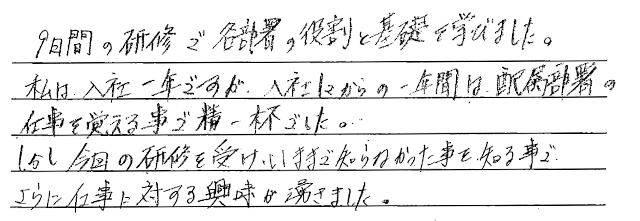 9日間の研修で各部署の役割と基礎を学びました。
私は、入社一年ですが、入社してからの一年間は、配属部署の
仕事を覚える事で精一杯でした。
しかし今回の研修を受け、いままで知らなかった事を知る事で
さらに仕事に対する興味が湧きました。